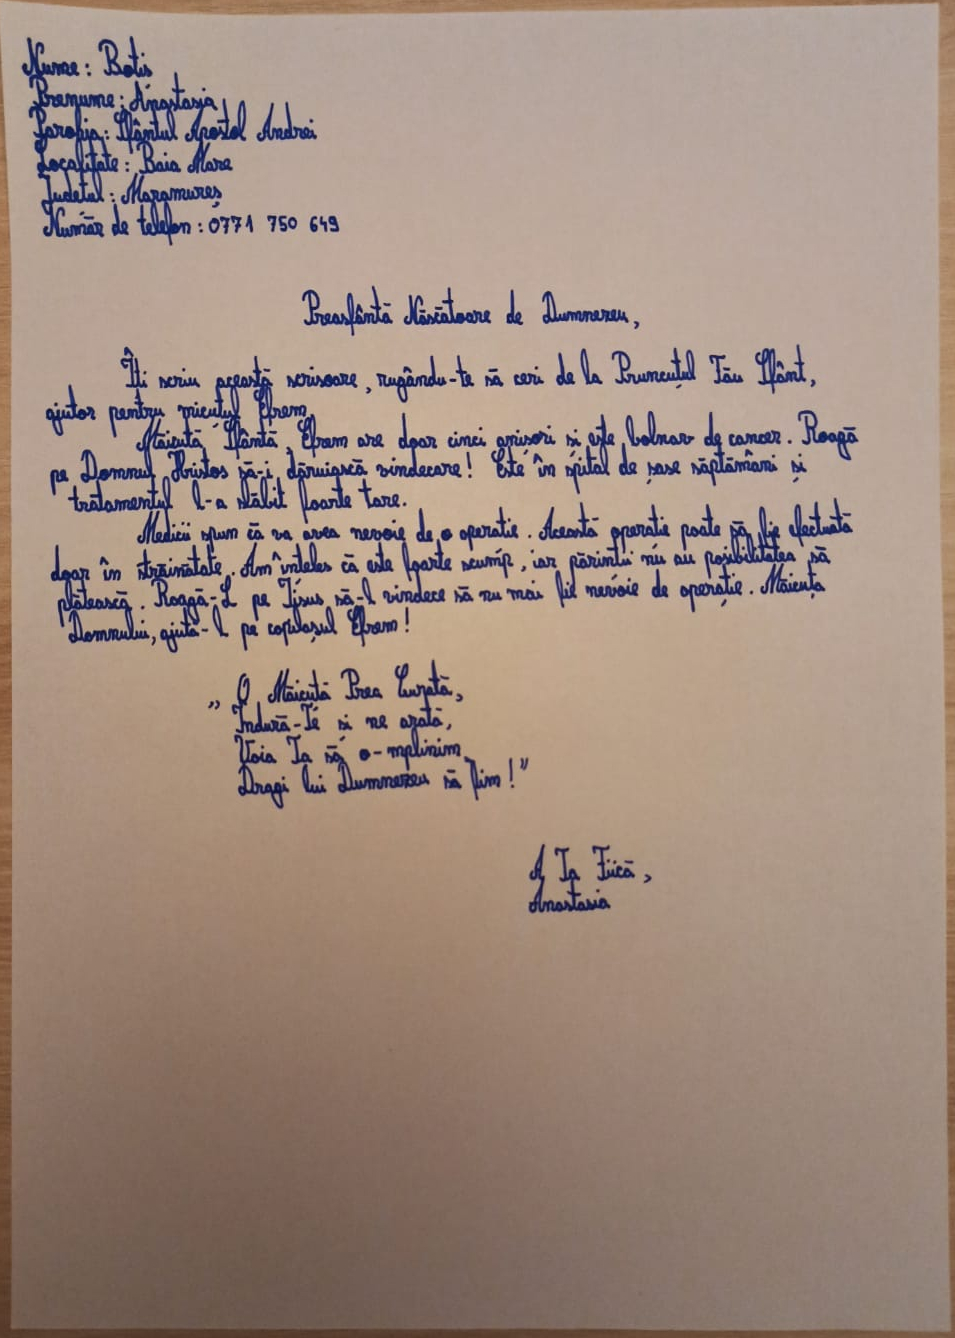 Nume: Botis
Prenume: Anastasia
Parohia: Sfântul Apostol Andrei
Localitate: Baia Mare
Județul: Maramureș
Număr de telefon: 0771 750 649
Preasfântă Născătoare de Dumnezeu,
Îți scriu această scrisoare, rugându-te să ceri de la Pruncuțul Tău Sfânt,
ajutor pentru micuțul Efrem.
Măicuță Sfântă, Efrem are doar cinci anișori și este bolnav de cancer. Roagă
pe Domnul Hristos să-i dăruiască vindecare! Este în spital de șase săptămâni și
tratamentul l-a slăbit foarte tare.
Medicii spun că va avea nevoie de o operație. Această operație poate să fie efectuată
doar în străinătate. Am înțeles că este foarte scump, iar părinții nu au posibilitatea să
plătească. Roagă-L pe Iisus să-l vindece să nu mai fie nevoie de operație. Măicuța
Domnului, ajută-l pe copilașul Efrem!
„O Măicuță Prea Curată,
Îndură-Te și ne arată,
Voia Ta să o-mplinim
Dragi lui Dumnezeu să fim!”
A Ta Fiică,
Anastasia